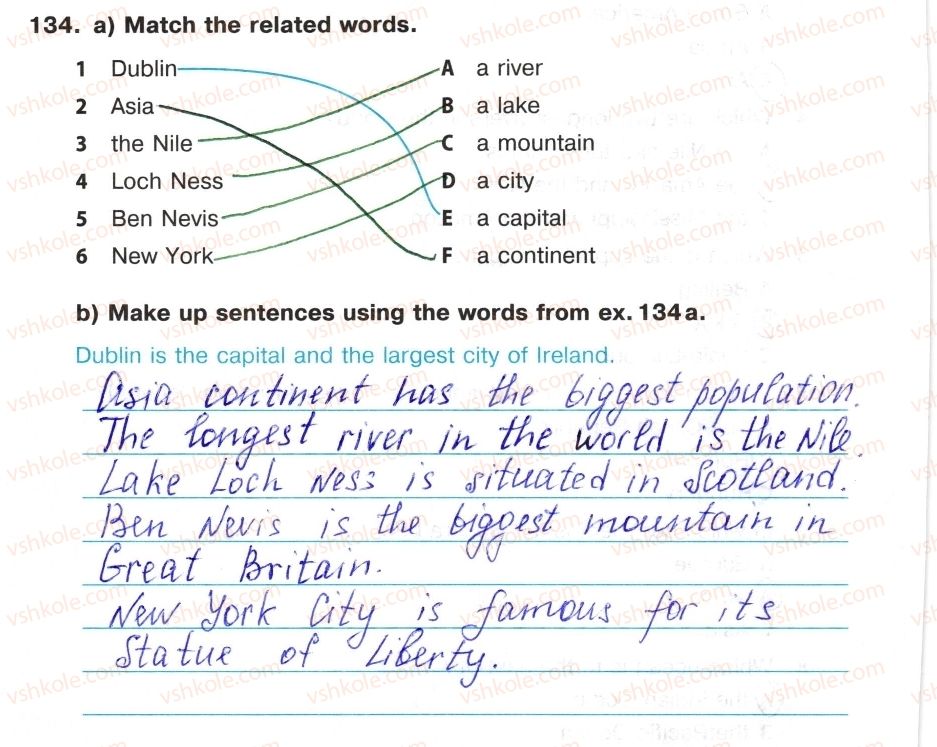 134. a) Match the related words.
1 Dublin A a river
2 Asia B a lake
3 the Nile C a mountain
4 Loch Ness D a city
5 Ben Nevis E a capital
6 New York F a continent
b) Make up sentences using the words from ex. 134 a.
Dublin is the capital and the largest city of Ireland.
Asia continent has the biggest population.
The longest river in the world is the Nile.
Lake Loch Ness is situated in Scotland.
Ben Nevis is the biggest mountain in
Great Britain.
New York City is famous for its
Statue of Liberty.
vshkole.com